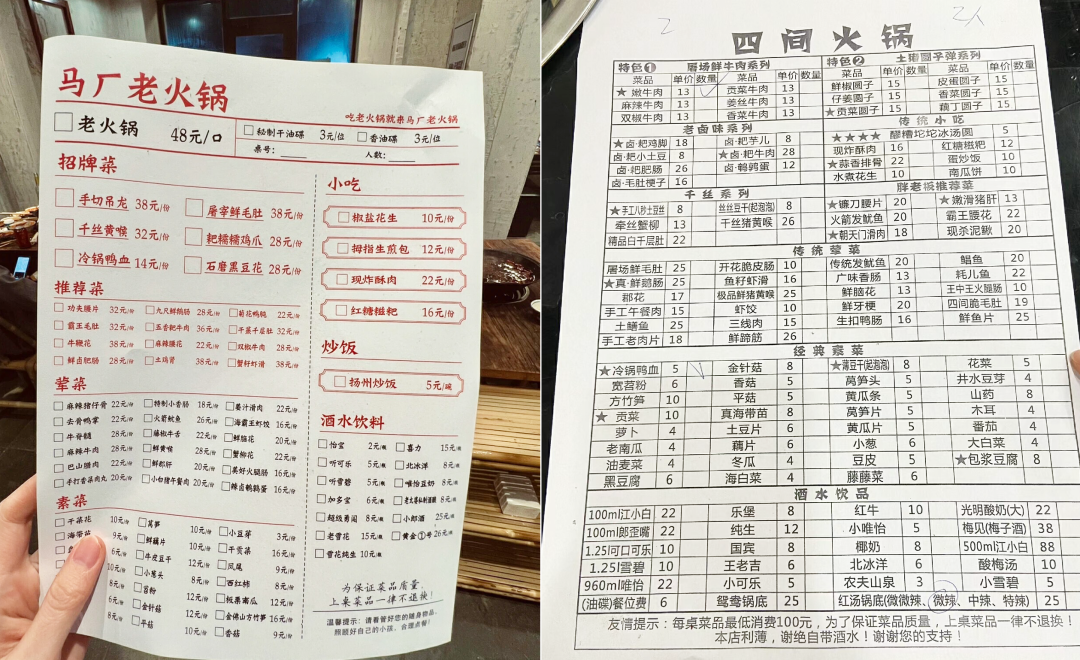 马厂老火锅
吃老火锅就来马厂老火锅
老火锅 48元/口
秘制干油碟 3元/位 香油碟 3元/位
桌号: 人数:
招牌菜
手切吊龙 38元/份 屠宰鲜毛肚 38元/份
千丝黄喉 32元/份 耙糯糯鸡爪 28元/份
冷锅鸭血 14元/份 石磨黑豆花 28元/份
推荐菜
功夫腰片 32元/份 九尺鲜鹅肠 28元/份 菊花鸭胗 22元/份
霸王毛肚 32元/份 五香耙牛肉 36元/份 千叶千层肚 32元/份
牛鞭花 38元/份 麻辣腰花 22元/份 双椒牛肉 28元/份
鲜卤肥肠 28元/份 土鸡肾 38元/份 蟹籽虾滑 38元/份
荤菜
麻辣猪仔骨 22元/份 特制小香肠 18元/份 姜汁滑肉 22元/份
去骨鸭掌 22元/份 火箭鱿鱼 26元/份 海霸王虾饺 16元/份
牛脊髓 28元/份 藤椒牛舌 22元/份 鲜脑花 20元/份
麻辣牛肉 28元/份 鲜黄喉 28元/份 蟹柳花 22元/份
巴山腊肉 22元/份 鲜郡肝 20元/份 美好火腿肠 16元/份
手打香菜肉丸 20元/份 小白猪午餐肉 20元/份 辣卤鹌鹑蛋 16元/份
素菜
干菜花 10元/份 莴笋 10元/份 小豆芽 3元/份
海带 9元/份 鲜藕片 10元/份 干贡菜 16元/份
6元/份 牛皮豆干 12元/份 凤尾 9元/份
10元/份 小葱头 8元/份 西红柿 8元/份
8元/份 苕粉 12元/份 板栗南瓜 12元/份
6元/份 金针菇 12元/份 金佛山方竹笋 16元/份
8元/份 平菇 10元/份 香菇 9元/份
小吃
椒盐花生 10元/份
拇指生煎包 12元/份
现炸酥肉 22元/份
红糖糍粑 16元/份
炒饭
扬州炒饭 5元/碗
酒水饮料
怡宝 2元/瓶 喜力 15元/瓶
听可乐 5元/瓶 北冰洋 8元/瓶
听雪碧 5元/瓶 唯怡豆奶 8元/瓶
加多宝 6元/瓶 老太婆秘制酒酿 8元/瓶
超级勇闯 8元/瓶 小郎酒 25元/瓶
老雪花 15元/瓶 黄金①号 26元/瓶
雪花纯生 10元/瓶
为保证菜品质量,
上桌菜品一律不退换!
温馨提示:请看管好您的随身物品,
照顾好自己的小孩,合理点餐!
2 2人
四间火锅
特色❶ 屠场鲜牛肉系列 特色❷ 土椿圆子弹系列
菜品 单价 数量 菜品 单价 数量 菜品 单价 数量 菜品 单价 数量
★嫩牛肉 13 贡菜牛肉 13 鲜椒圆子 15 皮蛋圆子 15
麻辣牛肉 13 姜丝牛肉 13 仔姜圆子 15 香菜圆子 15
双椒牛肉 13 香菜牛肉 13 ★贡菜圆子 15 藕丁圆子 15
老卤味系列 传统小吃
★卤·耙鸡脚 18 卤·耙芋儿 8 ★★★★ 醪糟坨坨冰汤圆 5
卤·耙小土豆 8 ★卤·耙牛肉 28 现炸酥肉 16 红糖糍粑 12
卤·耙肥肠 26 卤·鹌鹑蛋 12 ★蒜香排骨 22 蛋炒饭 10
卤·毛肚梗子 16 水煮花生 10 南瓜饼 10
千丝系列 胖老板推荐菜
★手工八秒土豆丝 8 丝丝豆干(起泡泡) 8 ★镰刀腰片 20 ★嫩滑猪肝 13
牵丝蟹柳 13 千丝猪黄喉 26 火箭发鱿鱼 20 霸王腰花 22
精品白千层肚 22 ★朝天门滑肉 18 现杀泥鳅 20
传统荤菜
屠场鲜毛肚 25 开花脆皮肠 10 传统发鱿鱼 20 鲳鱼 20
★真·鲜鹅肠 25 鱼籽虾滑 16 广味香肠 13 耗儿鱼 22
郡花 17 极品鲜猪黄喉 25 鲜脑花 13 王中王火腿肠 10
手工午餐肉 15 虾饺 10 鲜牙梗 20 四间脆毛肚 19
土鳝鱼 25 三线肉 15 生扣鸭肠 16 鲜鱼片 25
手工老肉片 18 鲜蹄筋 26
经典素菜
★冷锅鸭血 5 金针菇 8 ★薄豆干(起泡泡) 8 花菜 5
宽苕粉 6 香菇 5 莴笋头 5 井水豆芽 4
方竹笋 10 平菇 5 黄瓜条 5 山药 8
★贡菜 10 真海带苗 8 莴笋片 5 木耳 4
萝卜 4 土豆片 6 黄瓜片 5 番茄 4
老南瓜 4 藕片 6 小葱 6 大白菜 4
油麦菜 4 冬瓜 4 豆皮 5 ★包浆豆腐 8
黑豆腐 6 海白菜 4 藤藤菜 6
酒水饮品
100ml江小白 22 乐堡 8 红牛 10 光明酸奶(大) 22
100ml郎歪嘴 22 纯生 12 小唯怡 5 梅见(梅子酒) 38
1.25l可口可乐 10 国宾 8 椰奶 8 500ml江小白 88
1.25l雪碧 10 王老吉 6 北冰洋 6 酸梅汤 10
960ml唯怡 22 小可乐 5 农夫山泉 3 小雪碧 5
(油碟)餐位费 6 鸳鸯锅底 25 红汤锅底(微微辣、微辣、中辣、特辣) 25
友情提示:每桌菜品最低消费100元,为了保证菜品质量,上桌菜品一律不退换!
本店利薄,谢绝自带酒水!谢谢您的支持!